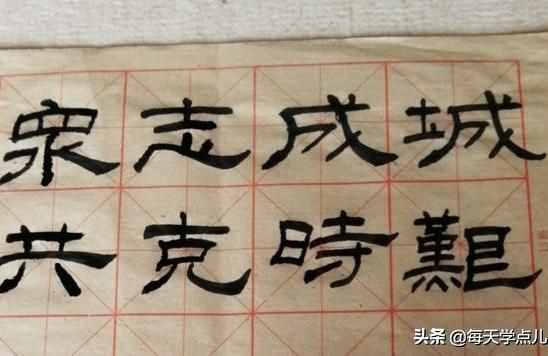 眾志成城
共克時艱
头条 @每天学点儿